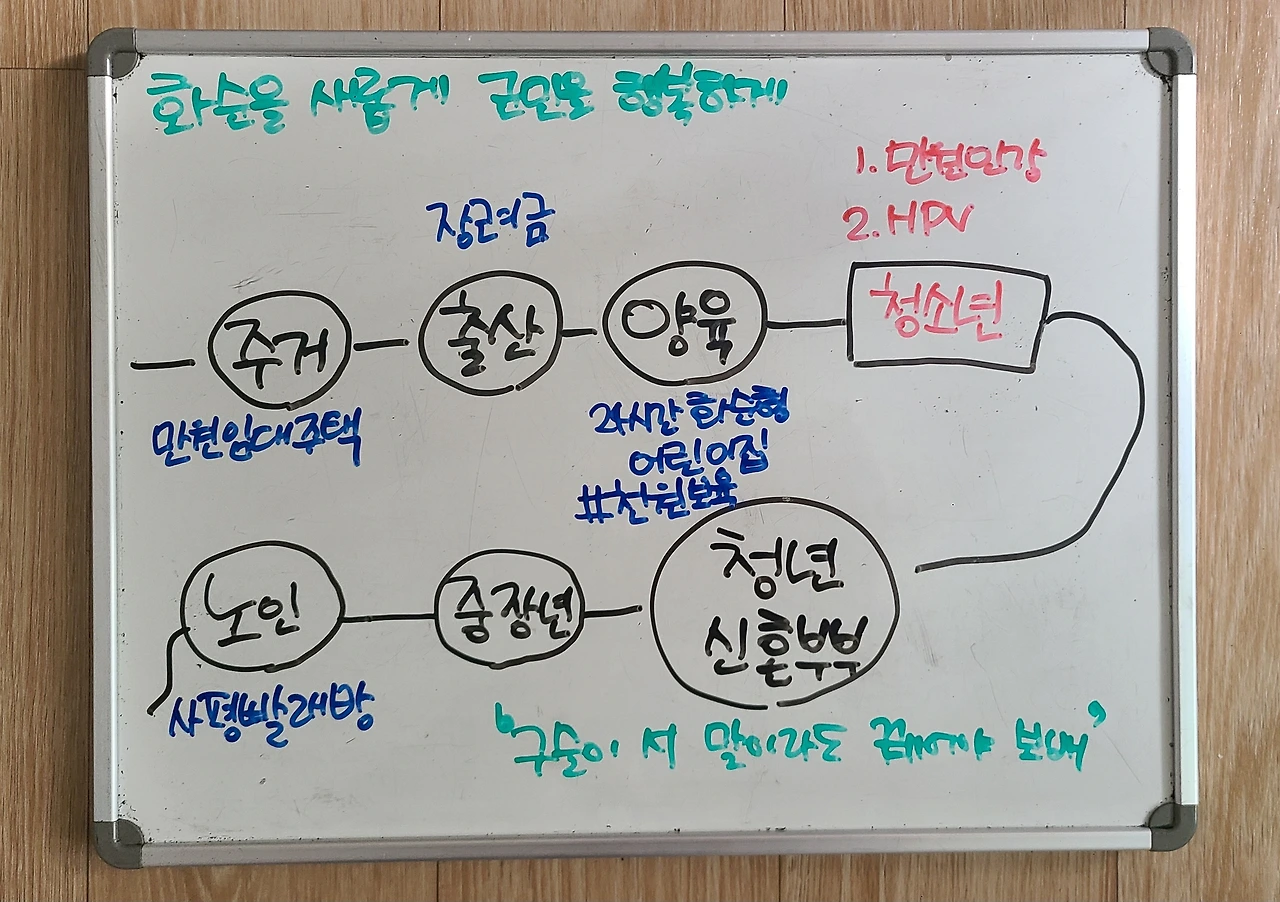 화순을 새롭게 군민을 행복하게
1. 만원인강
2. HPV
장려금
주거
출산
양육
청소년
만원임대주택
24시간 화순형
어린이집
#천원보육
노인
중장년
청년
신혼부부
사평빨래방
'구슬이 서 말이라도 꿰어야 보배'